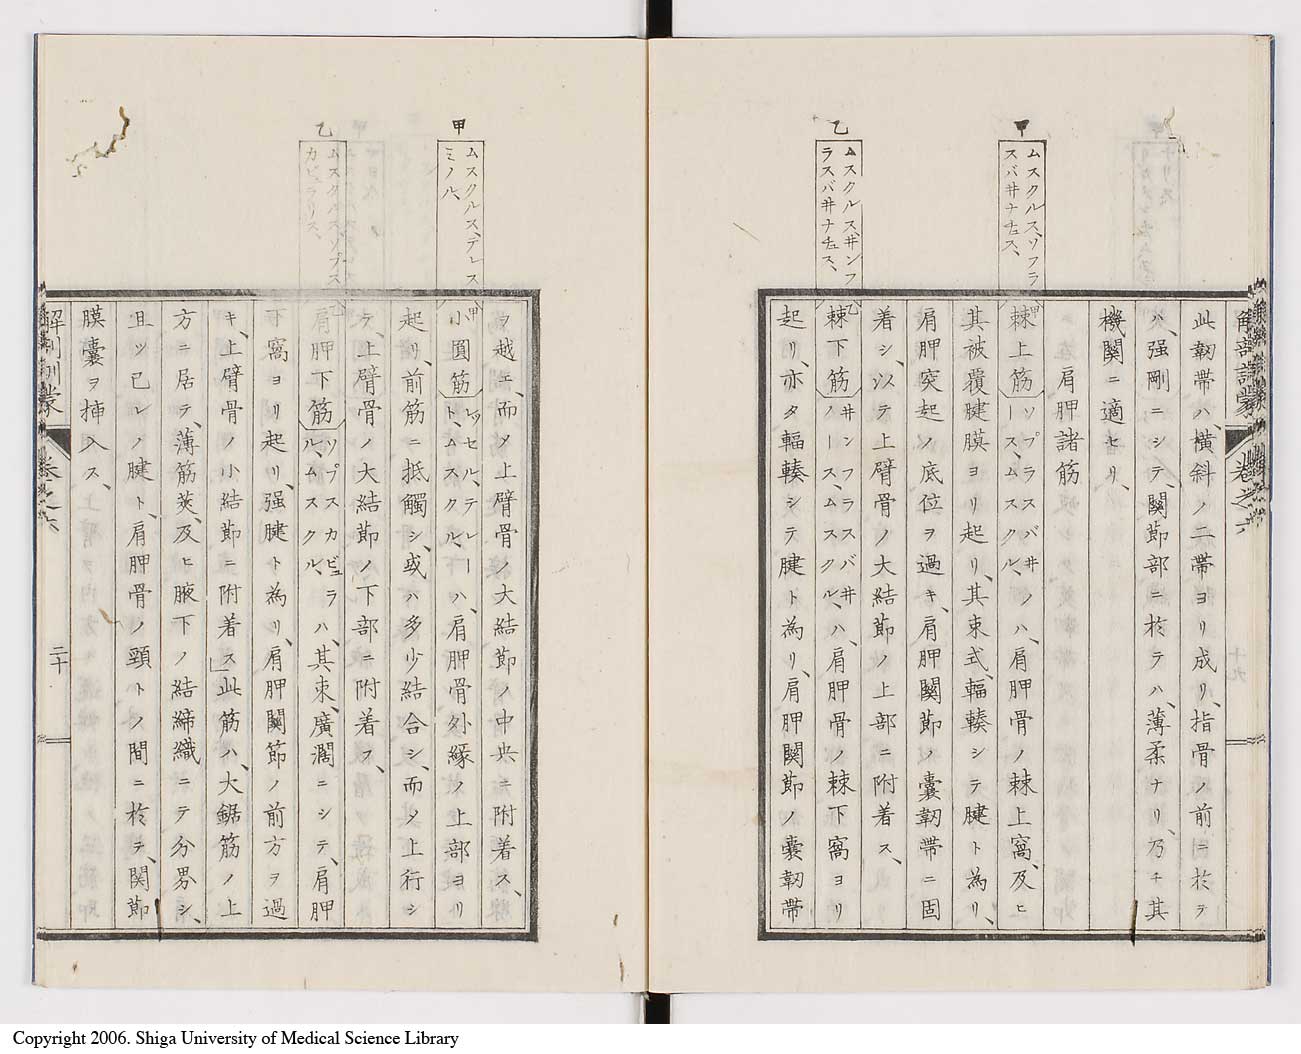 甲
ムスクルス、ソフラ
スパ井ナチュス、
乙
ムスクルス、井ンフ
ラスバ井ナチュス、
解剖訓蒙 卷之六
十九
此韌帶ハ、橫斜ノ二帶ヨリ成リ、指骨ノ前ニ於テ
ハ、强剛ニシテ、關節部ニ於テハ、薄柔ナリ、乃チ其
機關ニ適セリ、
肩胛諸筋
棘上筋ソプラスバ井ノハ、肩胛骨ノ棘上窩、及ヒ
ース、ムスクル、
其被覆腱膜ヨリ起リ、其束式、輻輳シテ腱ト為リ、
肩胛突起ノ底位ヲ過キ、肩胛關節ノ囊韌帶ニ固
着シ、以テ上臂骨ノ大結節ノ上部ニ附着ス、
棘下筋井ンフラスバ井
ノース、ムスクル、ハ、肩胛骨ノ棘下窩ヨリ
起リ、亦タ輻輳シテ腱ト為リ、肩胛關節ノ囊韌帶
甲
ムスクルス、テレス、
ミノル、
乙
ムスクルス、ソプス
カピラリス、
ヲ越エ、而〆上臂骨ノ大結節ノ中央ニ附着ス、
小圓筋レッセル、テレー
ト、ムスクル、ハ、肩胛骨外緣ノ上部ヨリ
起リ、前筋ニ抵觸シ、或ハ多少結合シ、而〆上行シ
テ、上臂骨ノ大結節ノ下部ニ附着ス、
肩胛下筋ソプスカピュラ
ル、ムスクル、ハ、其束、廣濶ニシテ、肩胛
下窩ヨリ起リ、强腱ト為リ、肩胛關節ノ前方ヲ過
キ、上臂骨ノ小結節ニ附着ス」此筋ハ、大鋸筋ノ上
方ニ居テ、薄筋莢、及ヒ腋下ノ結締織ニテ分界シ、
且ツ己レノ腱ト、肩胛骨ノ頸トノ間ニ於テ、關節
膜囊ヲ挿入ス、
解剖訓蒙 卷之六
二十
Copyright 2006. Shiga University of Medical Science Library